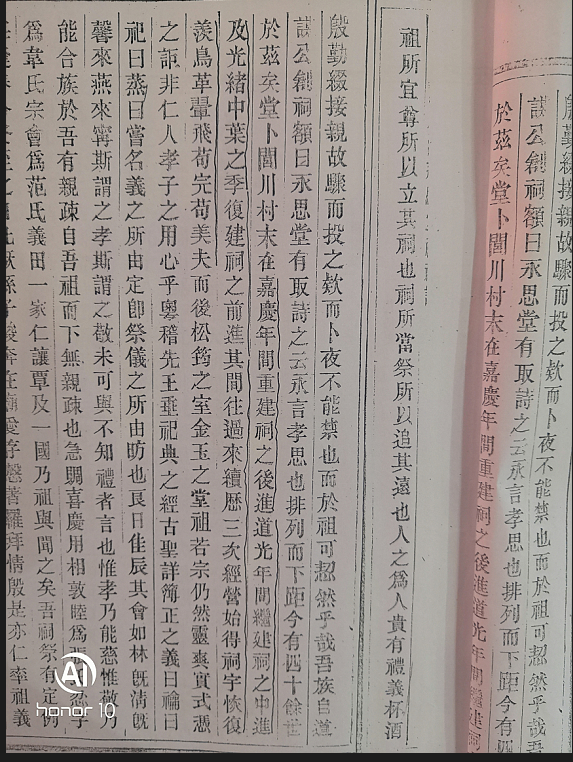 殷勤綴接親故驟而投之欸而卜夜不能禁也而於祖可恝
誥公創祠額曰永思堂有取詩之云永言孝思也排列而下距今有四
於茲矣堂卜閶川村末在嘉慶年間重建祠之後進道光年間繼建祠
祖所宜尊所以立其祠也祠所當祭所以追其遠也人之爲人貴有禮義杯酒
殷勤綴接親故驟而投之欸而卜夜不能禁也而於祖可恝然乎哉吾族自道
誥公創祠額曰永思堂有取詩之云永言孝思也排列而下距今有四十餘世
於茲矣堂卜閶川村末在嘉慶年間重建祠之後進道光年間繼建祠之中進
及光緒中葉之季復建祠之前進其間往過來續歷三次經營始得祠宇恢復
羨鳥革翬飛苟完苟美夫而後松筠之室金玉之堂祖若宗仍然靈爽實式憑
之詎非仁人孝子之用心乎粵稽先王垂祀典之經古聖詳簡正之義曰禴曰
祀曰蒸曰嘗名義之所由定卽祭儀之所由昉也良日佳辰其會如林旣淸旣
馨來燕來寧斯謂之孝斯謂之敬未可與不知禮者言也惟孝乃能慈惟敬乃
能合族於吾有親疎自吾祖而下無親疎也急關喜慶用相敦睦爲張忍字
爲韋氏宗會爲范氏義田一家仁讓覃及一國乃祖與聞之矣吾祠祭有定例
孫子駿奔在廟 序 羅拜情殷是亦仁率祖義
AI
honor 10